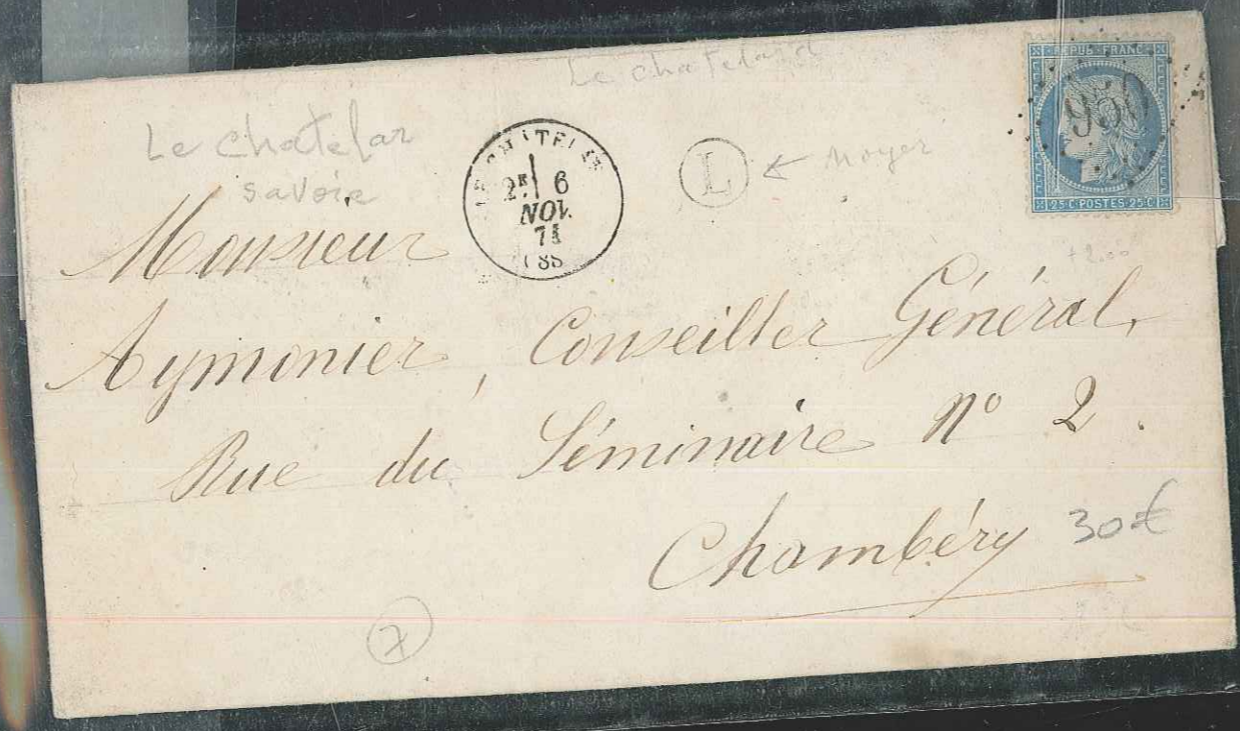 Le chatelard
Le chatelar
savoie
LE CHATELARD
2E 6
NOV.
71
(88)
L
← Noyer
REPUB·FRANC·
950
25·C·POSTES·25·C
Monsieur
Aymonier, Conseiller Général,
Rue du Séminaire N° 2.
Chambéry
30€
7